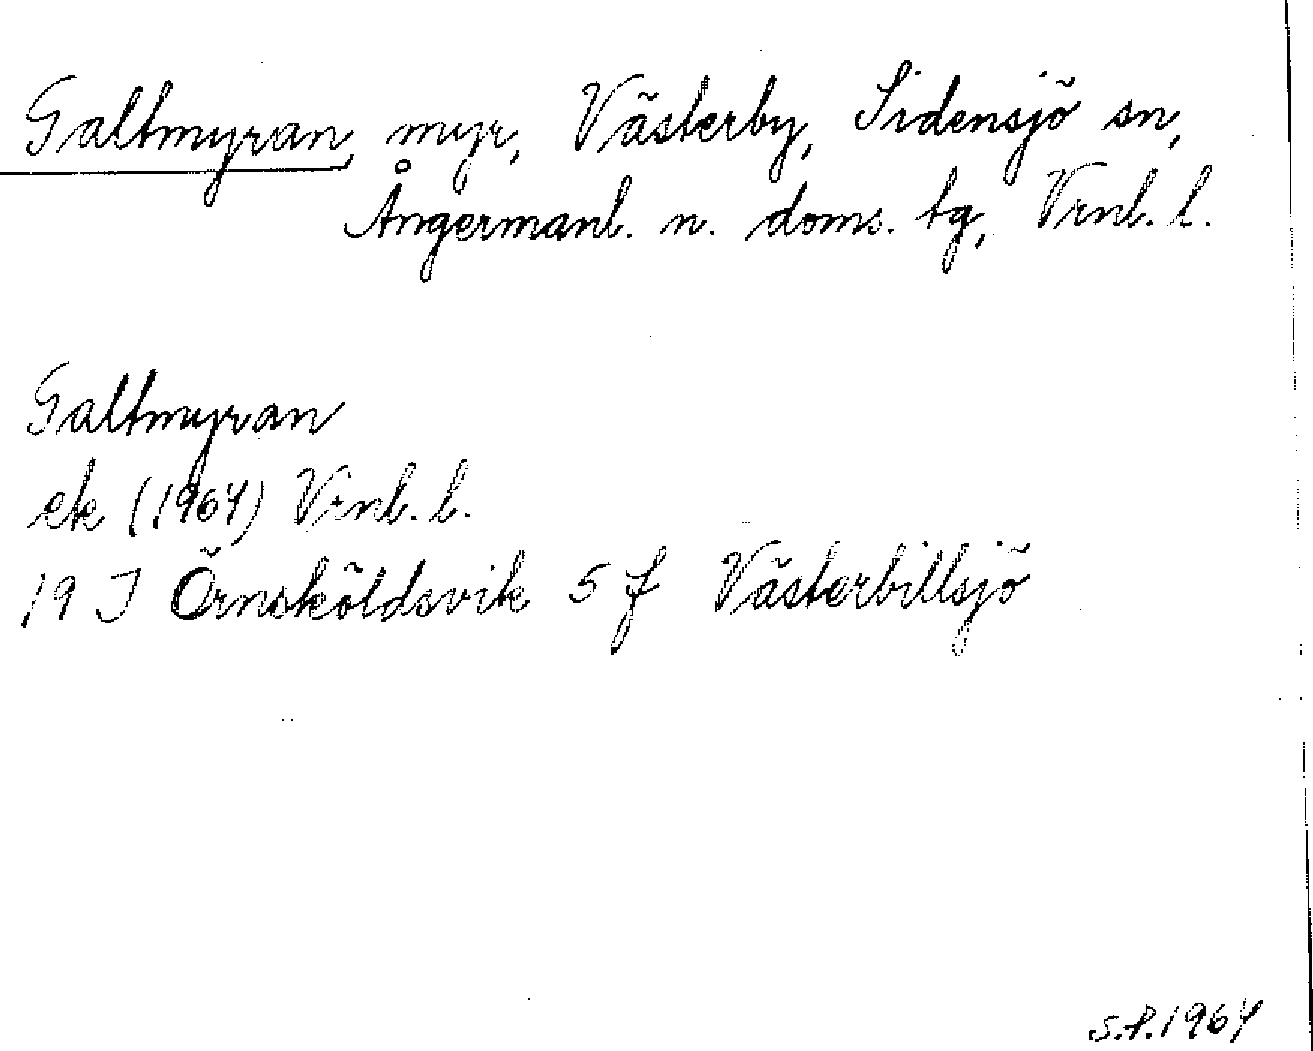 Galtmyran, myr, Västerby, Sidensjö sn,
Ångermanl. n. doms. tg, Vrnl. l.
Galtmyran
ek (1964) Vrnl. l.
19 J Örnsköldsvik 5 f Västerbillsjö
S.P. 1964